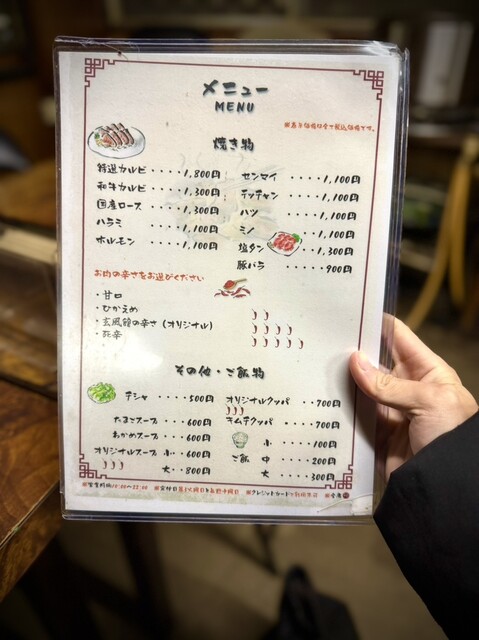 メニュー
MENU
※表示価格は全て税込価格です。
焼き物
特選カルビ ････1,800円
和牛カルビ ････1,300円
国産ロース ････1,300円
ハラミ ････1,100円
ホルモン ････1,100円
センマイ ････1,100円
テッチャン ････1,100円
ハツ ････1,100円
ミノ ････1,100円
塩タン ････1,300円
豚バラ ････900円
お肉の辛さをお選びください
・甘口
・ひかえめ
・玄風館の辛さ (オリジナル)
・死辛
その他・ご飯物
チシャ ････500円
たまごスープ ････600円
わかめスープ ････600円
オリジナルスープ 小･･600円
大･･800円
オリジナルクッパ ･･700円
キムチクッパ ････700円
ご飯 小 ････100円
中 ････200円
大 ････300円